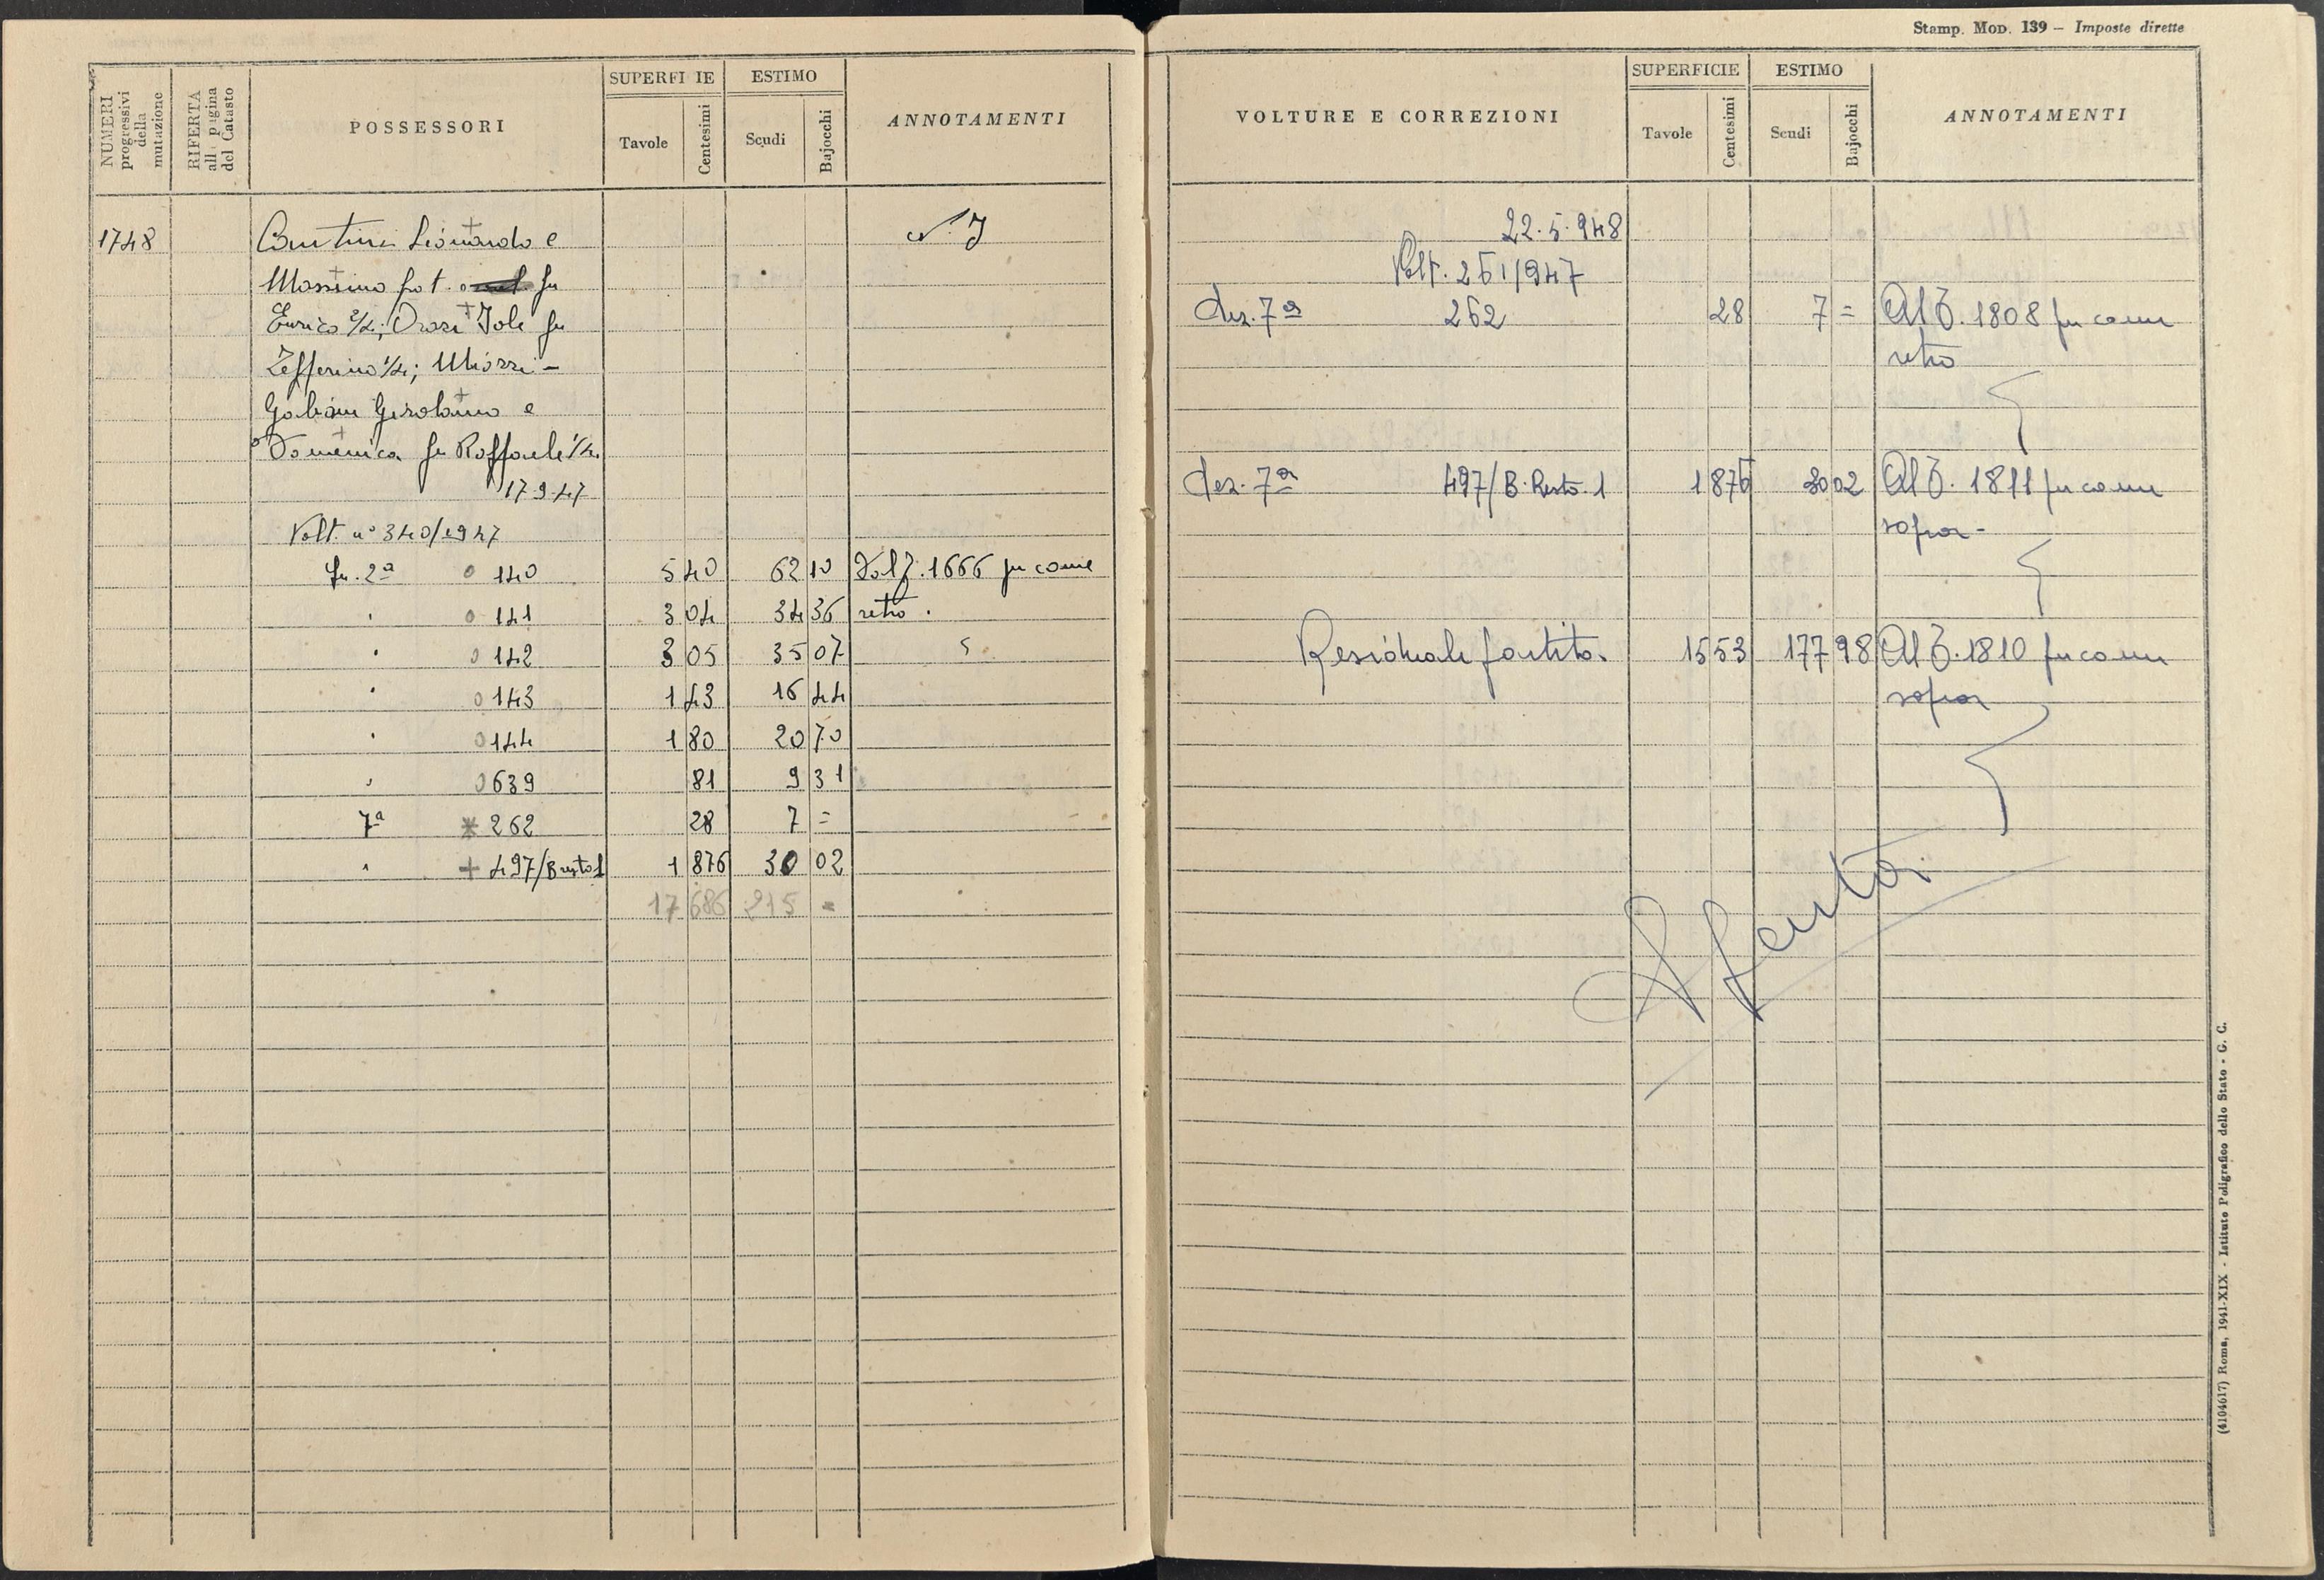 NUMERI progressivi della mutazione
RIFERTA all pagina del Catasto
POSSESSORI
SUPERFI IE
Tavole
Centesimi
ESTIMO
Scudi
Bajocchi
ANNOTAMENTI
N. 7
1748 Leonardo e
Massimo fu
Enrico 2/4; Orazi Jole fu
Zefferino 1/4;
Galiani Girolamo e
Domenica fu Raffaele 1/4
17.9.47
Volt. n° 340/1947
Fr. 2ª 0 140 5 40 62 10 Dal Z. 1666 per come
" 0 141 3 04 34 36 retro.
" 0 142 3 05 35 07
" 0 143 1 43 16 44
" 0 144 1 80 20 70
" 0 639 81 9 31
7ª * 262 28 7 =
" + 497/B resto 1 1 876 30 02
17 686 215 =
Stamp. Mod. 139 — Imposte dirette
VOLTURE E CORREZIONI
SUPERFICIE
Tavole
Centesimi
ESTIMO
Scudi
Bajocchi
ANNOTAMENTI
22.5.948
Volt. 261/947
Sez. 7ª 262 28 7 = Al Z. 1808 per come
retro
Sez. 7ª 497/B. Resto. 1 1 876 30 02 Al Z. 1811 per come
sopra-
Residuale partita. 15 53 177 98 Al Z. 1810 per come
sopra
Spenta
(4104617) Roma, 1941-XIX - Istituto Poligrafico dello Stato - G. C.